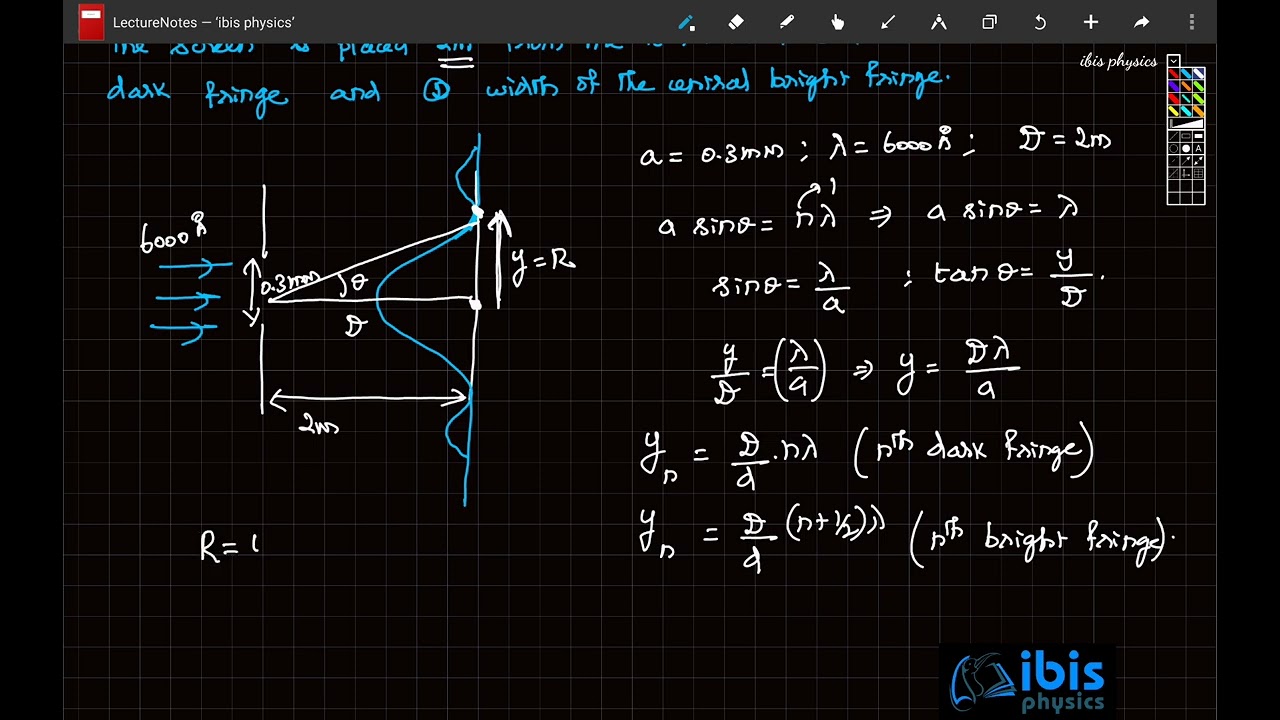 LectureNotes — 'ibis physics'
ibis physics
the screen is placed 2m from the
dark fringe and ② width of the central bright fringe.
a = 0.3mm ; λ = 6000Å ; D = 2m
a sinθ = nλ ⇒ a sinθ = λ
1
sinθ = λ/a ; tan θ = y/D .
y/D = (λ/a) ⇒ y = Dλ/a
y_n = D/d . nλ (nth dark fringe)
y_n = D/d (n+1/2)λ (nth bright fringe).
6000Å
0.3mm
θ
D
y = R
2m
R = (
ibis
physics